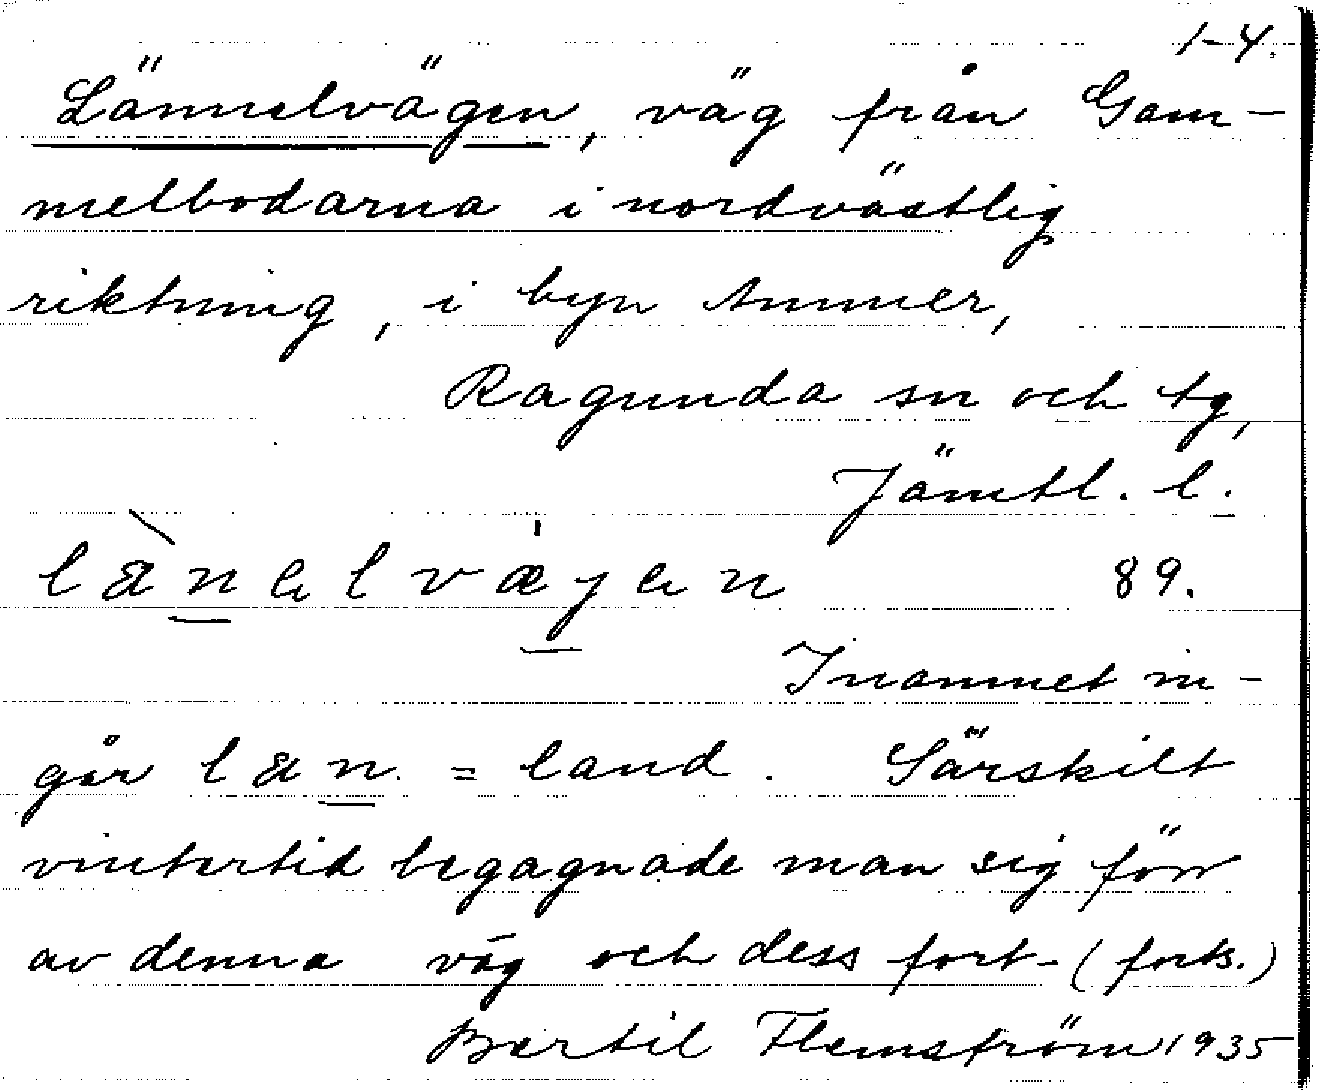 1-4.
Lännelvägen, väg från Gam-
melbodarna i nordvästlig
riktning, i byn Ammer,
Ragunda sn och tg,
Jämtl. l.
lænelvæjen 89.
I namnet in-
går læn = land. Särskilt
vintertid begagnade man sig förr
av denna väg och dess fort- (forts.)
Bertil Flemström 1935